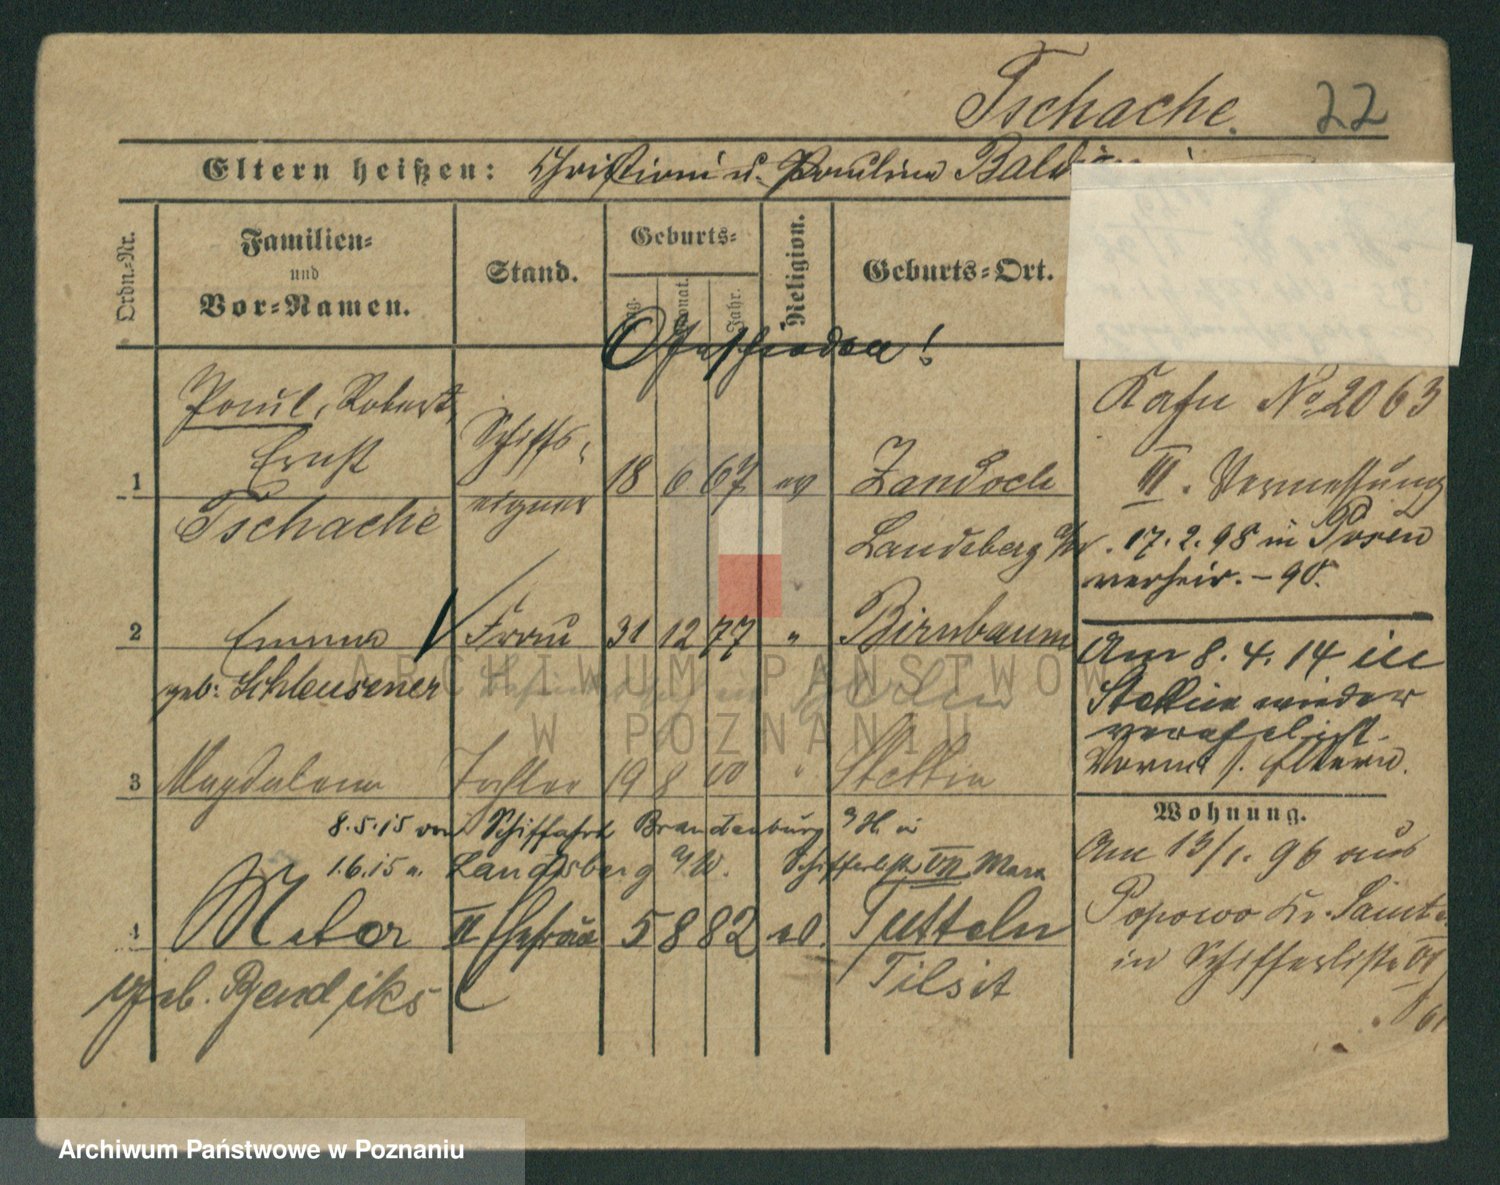 Tschache. 22
Eltern heißen: Christian u. Paulina
Ordn.-Nr.
Familien-
und
Vor-Namen.
Stand.
Geburts-
Tag.
Monat.
Jahr.
Religion.
Geburts-Ort.
Geschieden!
Paul, Robert,
Ernst
1
Tschache
Schiffs-
eigner
18 6 67 ev
Zandoch
Landsberg a/W.
Kahn No 2063
III. Vermessung
17.2.98 in Posen
verheir. - 98.
2 Emma Frau 31 12 77 " Birnbaum
geb. Schleusener
Am 8.4.14 in
Stettin wieder
verehelicht.
Vorm. s. Eltern.
3 Magdalena Tochter 19 8 00 " Stettin
8.5.15 von Schifffahrt Brandenburg a/H. in
1.6.15 n. Landsberg a/W. Schifferliste VII
4 Meta II Ehefrau 5 8 82 ev.
geb. Bendiks
Tilsit
Wohnung.
Am 13/1. 96 aus
Popowo Kr. Samter
in Schifferliste VII
61
ARCHIWUM PAŃSTWOWE
W POZNANIU
Archiwum Państwowe w Poznaniu